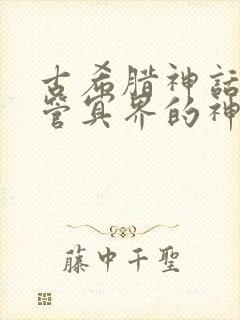 古希腊神话
管冥界的神
藤中千聖